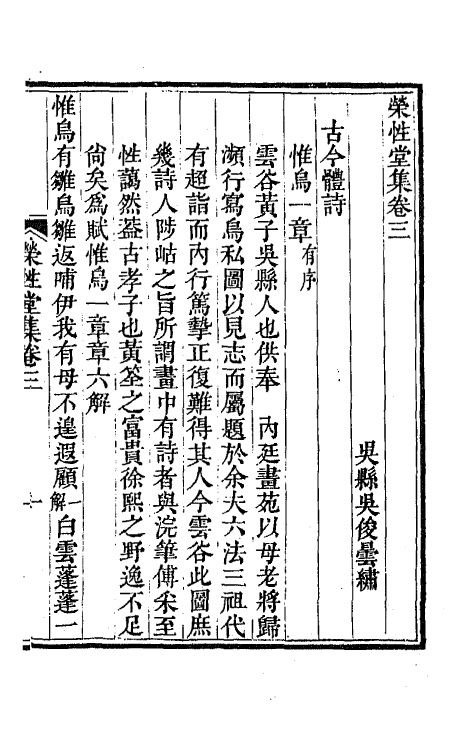 榮性堂集卷三
吳縣吳俊曇繡
古今體詩
惟烏一章有序
雲谷黃子吳縣人也供奉　內廷畫苑以母老將歸
瀕行寫烏私圖以見志而屬題於余夫六法三祖代
有超詣而內行篤摯正復難得其人今雲谷此圖庶
幾詩人陟岵之旨所謂畫中有詩者與浣筆傅采至
性藹然葢古孝子也黃筌之富貴徐熙之野逸不足
尙矣爲賦惟烏一章章六解
惟烏有雛烏雛返哺伊我有母不遑遐顧一解白雲蓬蓬一
榮性堂集卷三
一